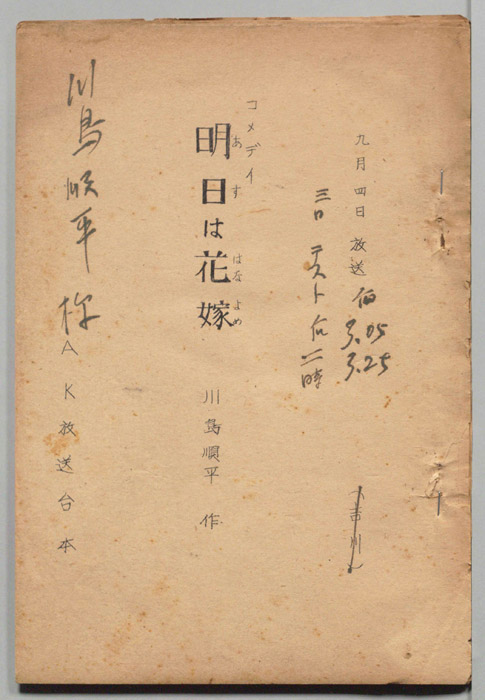 九月四日 放送 后 3.05 3.25
三日 テスト 后 二時
(吉川)
コメデイ
明日は花嫁
あす はなよめ
川島順平 作
川島順平 様
AK放送台本